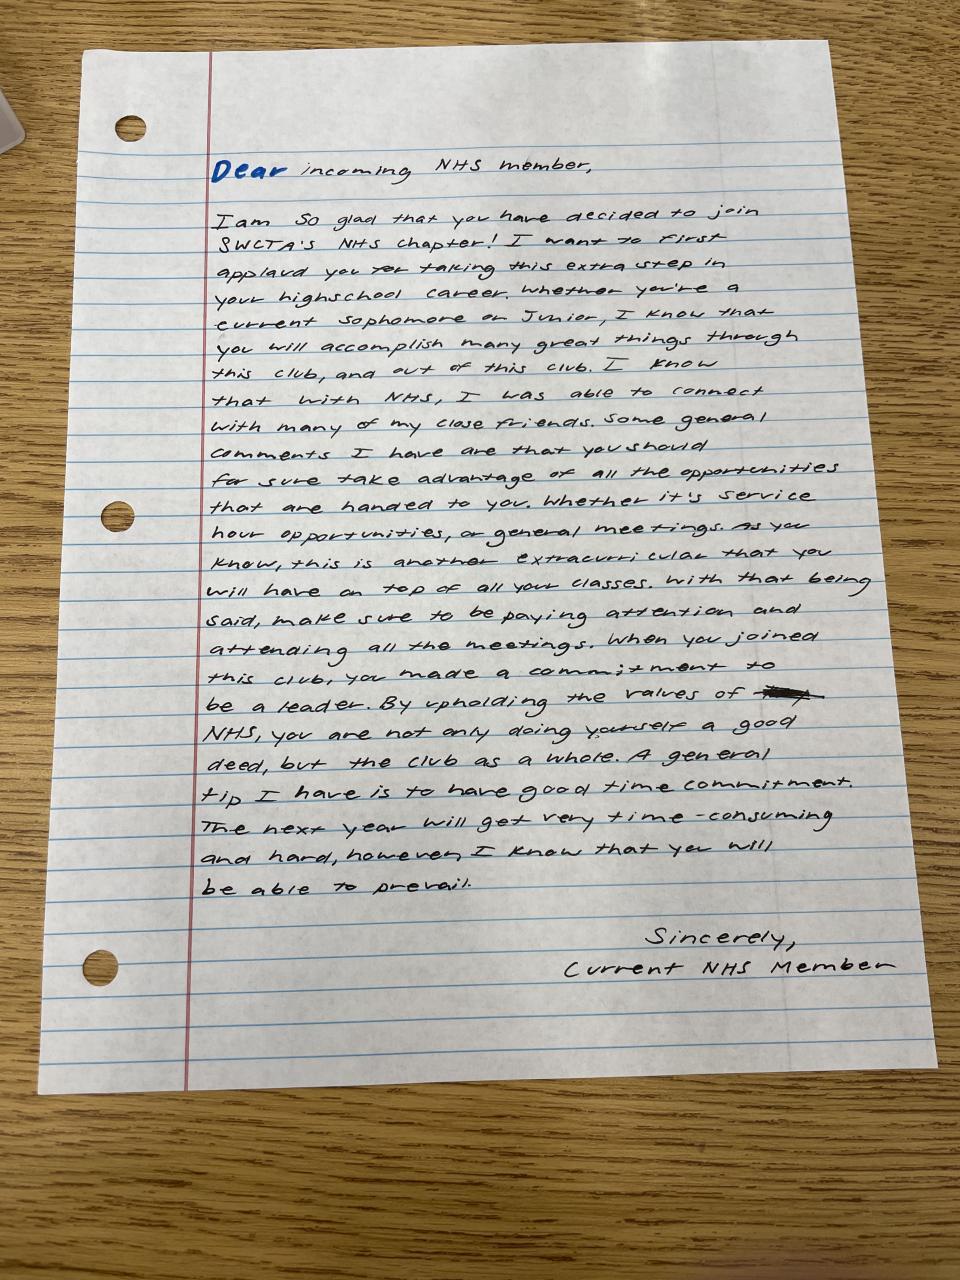 Dear incoming NHS member,
I am so glad that you have decided to join
SWCTA's NHS chapter! I want to first
applaud you for taking this extra step in
your highschool career. Whether you're a
current sophomore or Junior, I know that
you will accomplish many great things through
this club, and out of this club. I know
that with NHS, I was able to connect
with many of my close friends. Some general
comments I have are that you should
for sure take advantage of all the opportunities
that are handed to you. Whether it's service
hour opportunities, or general meetings. As you
know, this is another extracurricular that you
will have on top of all your classes. With that being
said, make sure to be paying attention and
attending all the meetings. When you joined
this club, you made a commitment to
be a leader. By upholding the values of
NHS, you are not only doing yourself a good
deed, but the club as a whole. A general
tip I have is to have good time commitment.
The next year will get very time-consuming
and hard, however, I know that you will
be able to prevail.
Sincerely,
Current NHS Member